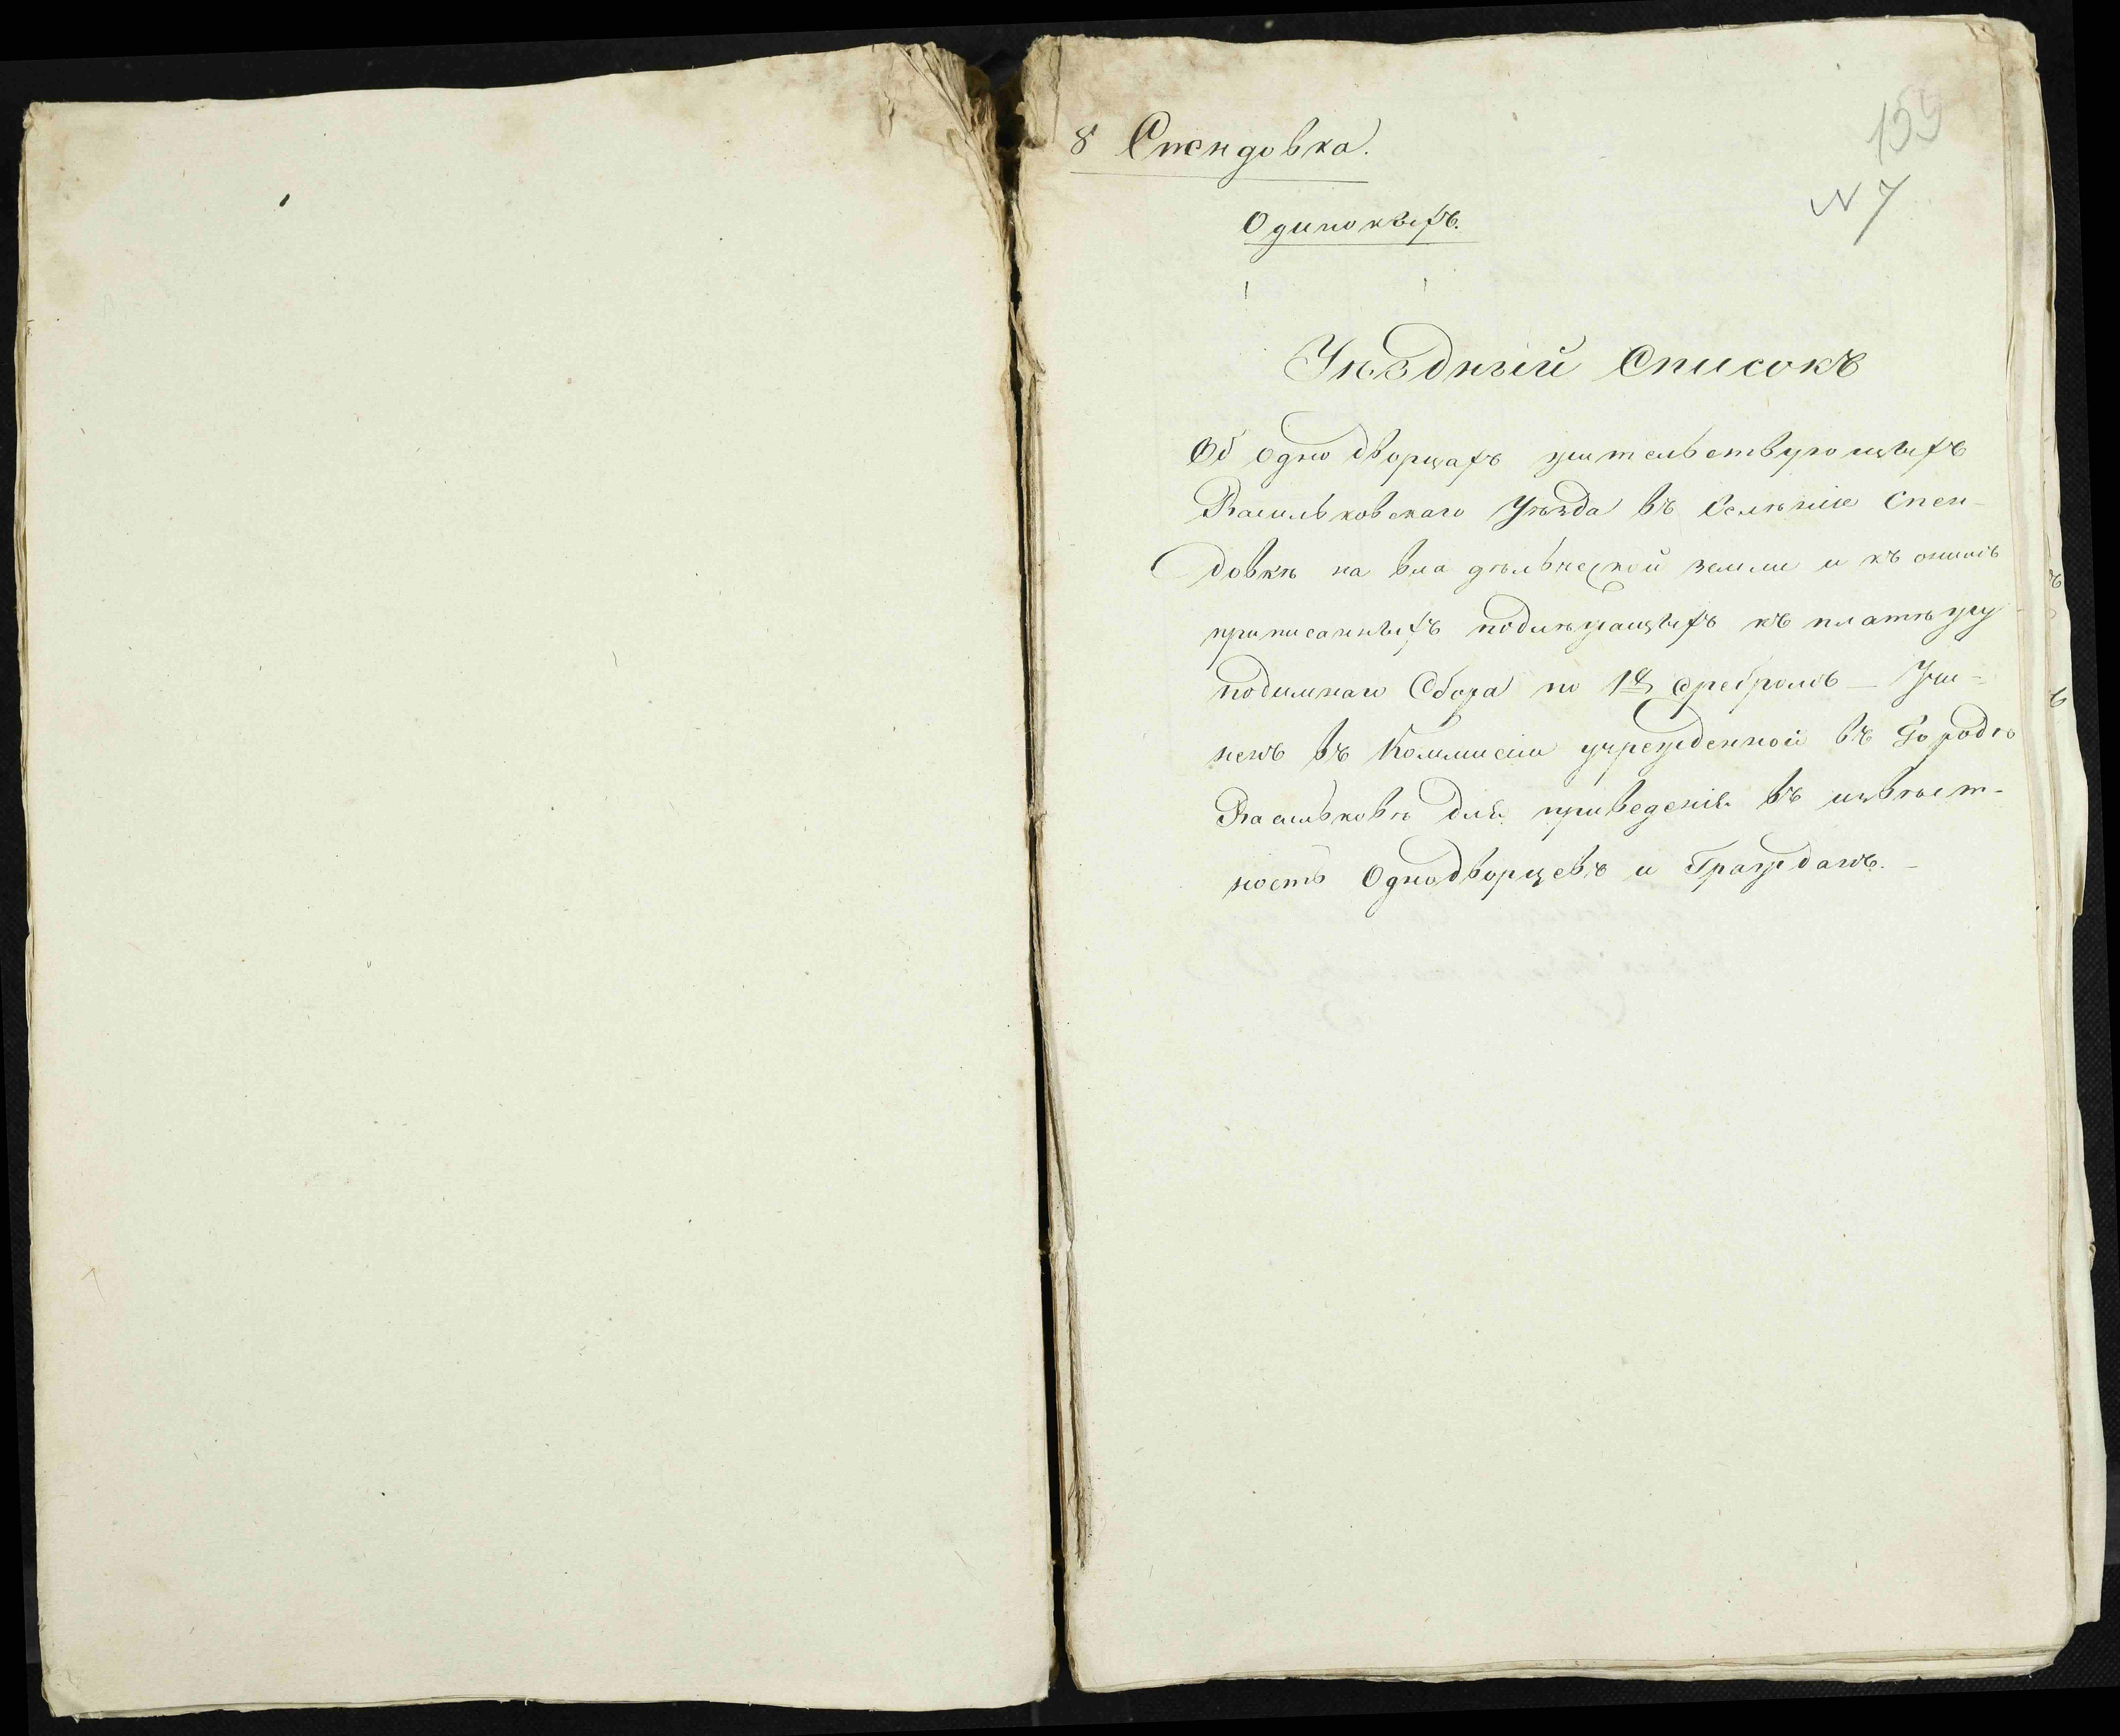 8 Спендовка.
155
N 7
Одинокихъ.
1
Уѣздный Списокъ
Об однодворцахъ жительствующихъ
Васильковскаго Уѣзда въ Селѣніе Спен-
довкѣ на владѣльческой земли и къ оной
приписанныхъ подлѣжащихъ къ платѣжу
подымнаго Сбора по 1 сребромъ – Учи-
ненъ въ Коммисіи учрежденной въ Городѣ
Васильковѣ для приведенія въ извѣст-
ность Однодворцевъ и Гражданъ. –